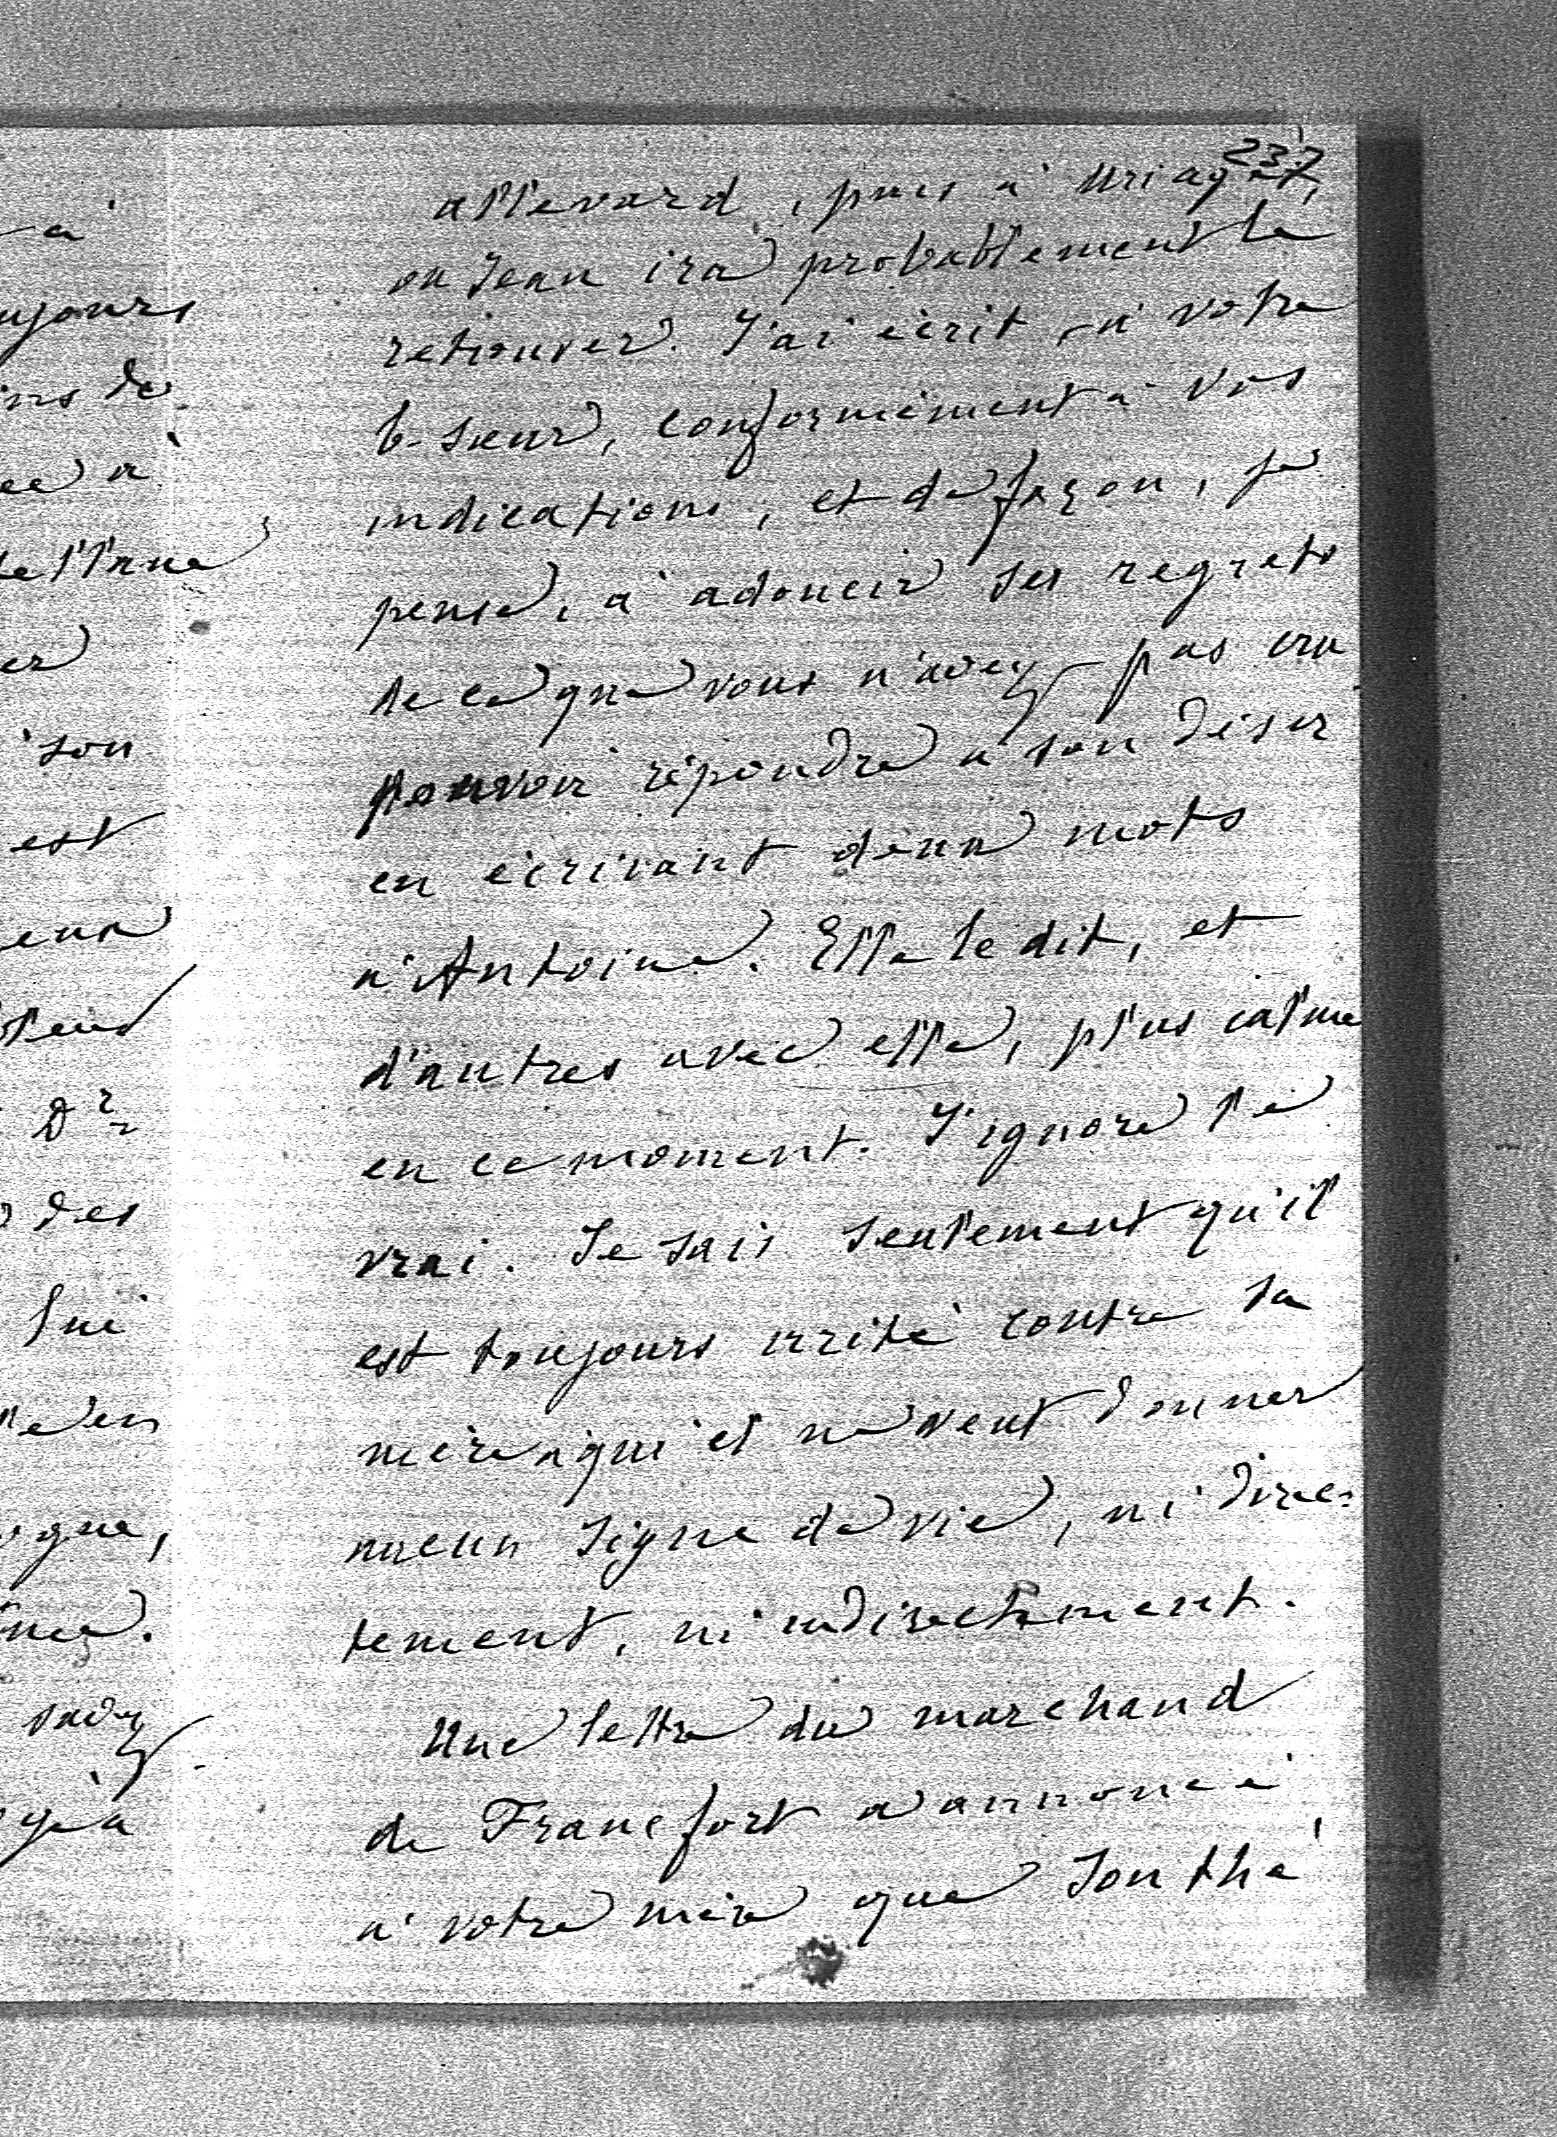 237
allevard, puis à Uriage,
où Jean ira probablement la
retrouver. J'ai écrit, à votre
b-sœur, conformément à vos
indications, et de façon, je
pense, à adoucir ses regrets
de ce que vous n'avez pas cru
pouvoir répondre à son désir
en écrivant deux mots
à Antoine. Elle le dit, et
d'autres avec elle, plus calme
en ce moment. J'ignore le
vrai. Je sais seulement qu'il
est toujours irrité contre sa
mère à qui il ne veut donner
aucun signe de vie, ni direc-
tement, ni indirectement.
Une lettre du marchand
de Francfort a annoncé
à votre mère que son thé
à
ujours
ins de
ée à
de l'Inne
er
son
est
eur
Dr
des
lui
gne,